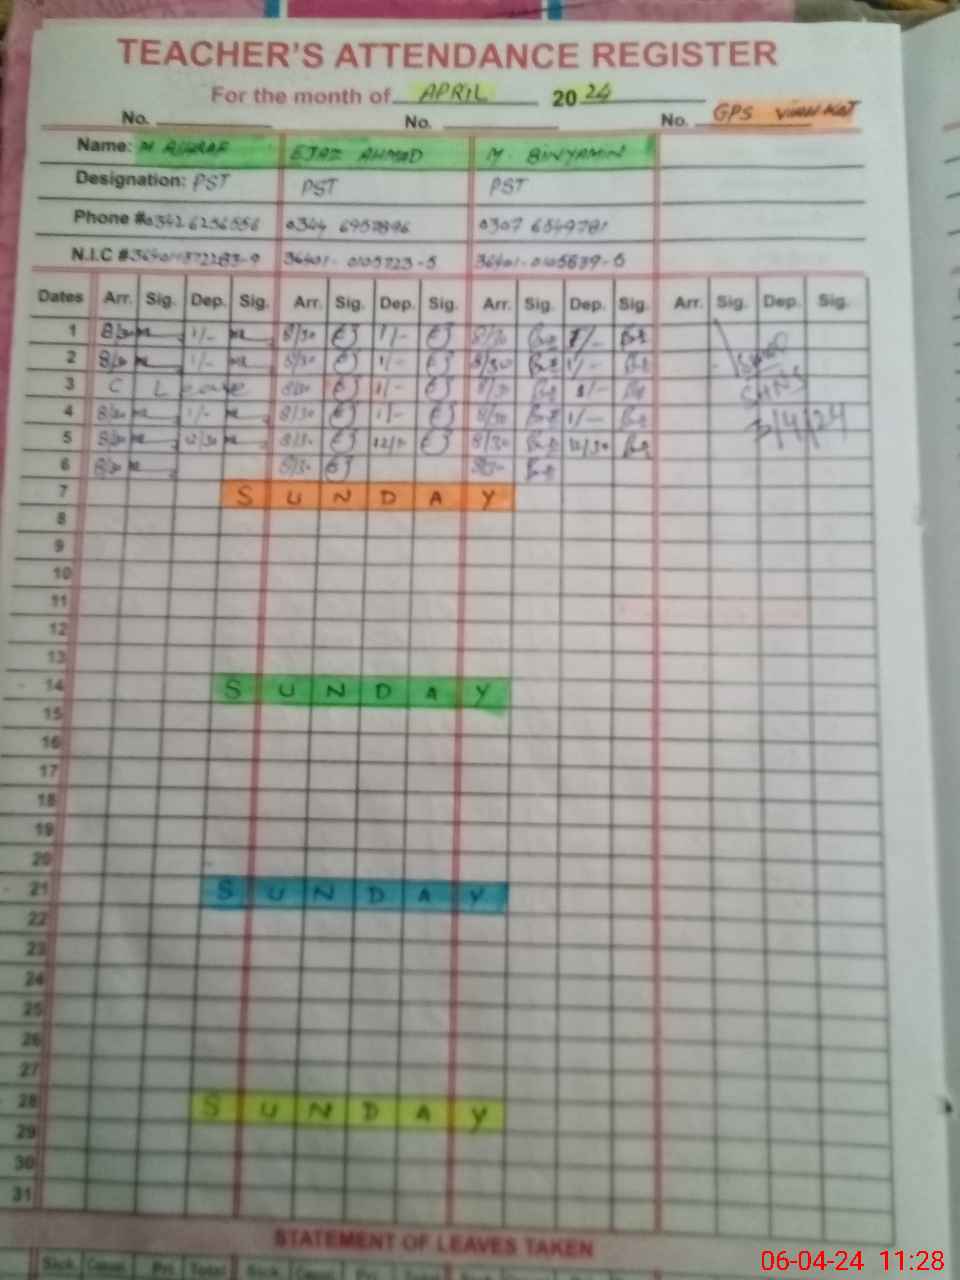 TEACHER'S ATTENDANCE REGISTER
For the month of APRIL 2024
No. No. No. GPS
Name: M ASHRAF EJAZ AHMAD M. BINYAMIN
Designation: PST PST PST
Phone # 0342 6256556 0344 6957896 0307 6549781
N.I.C # 36401-0105723-5 36401-0105839-5
Dates Arr. Sig. Dep. Sig. Arr. Sig. Dep. Sig. Arr. Sig. Dep. Sig. Arr. Sig. Dep. Sig.
1 8/30 1/- 8/30 EJ 1/- EJ 8/30 1/-
2 8/30 1/- 8/30 EJ 1/- EJ 8/30 1/-
3 C Leave 8/30 EJ 1/- EJ 8/30 1/-
4 8/30 1/- 8/30 EJ 1/- EJ 8/30 1/-
5 8/30 12/30 8/30 EJ EJ 8/30 12/30
6 8/30 8/30 EJ 8/30
7 SUNDAY
8
9
10
11
12
13
14 SUNDAY
15
16
17
18
19
20
21 SUNDAY
22
23
24
25
26
27
28 SUNDAY
29
30
31
STATEMENT OF LEAVES TAKEN
Sick. Casual. Pri. Total Sick. Casual. Pri. Total
06-04-24 11:28